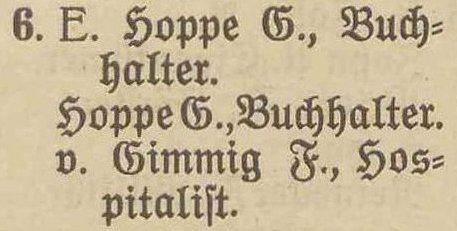 6. E. Hoppe G., Buch-
halter.
Hoppe G., Buchhalter.
v. Gimmig F., Hos-
pitalist.